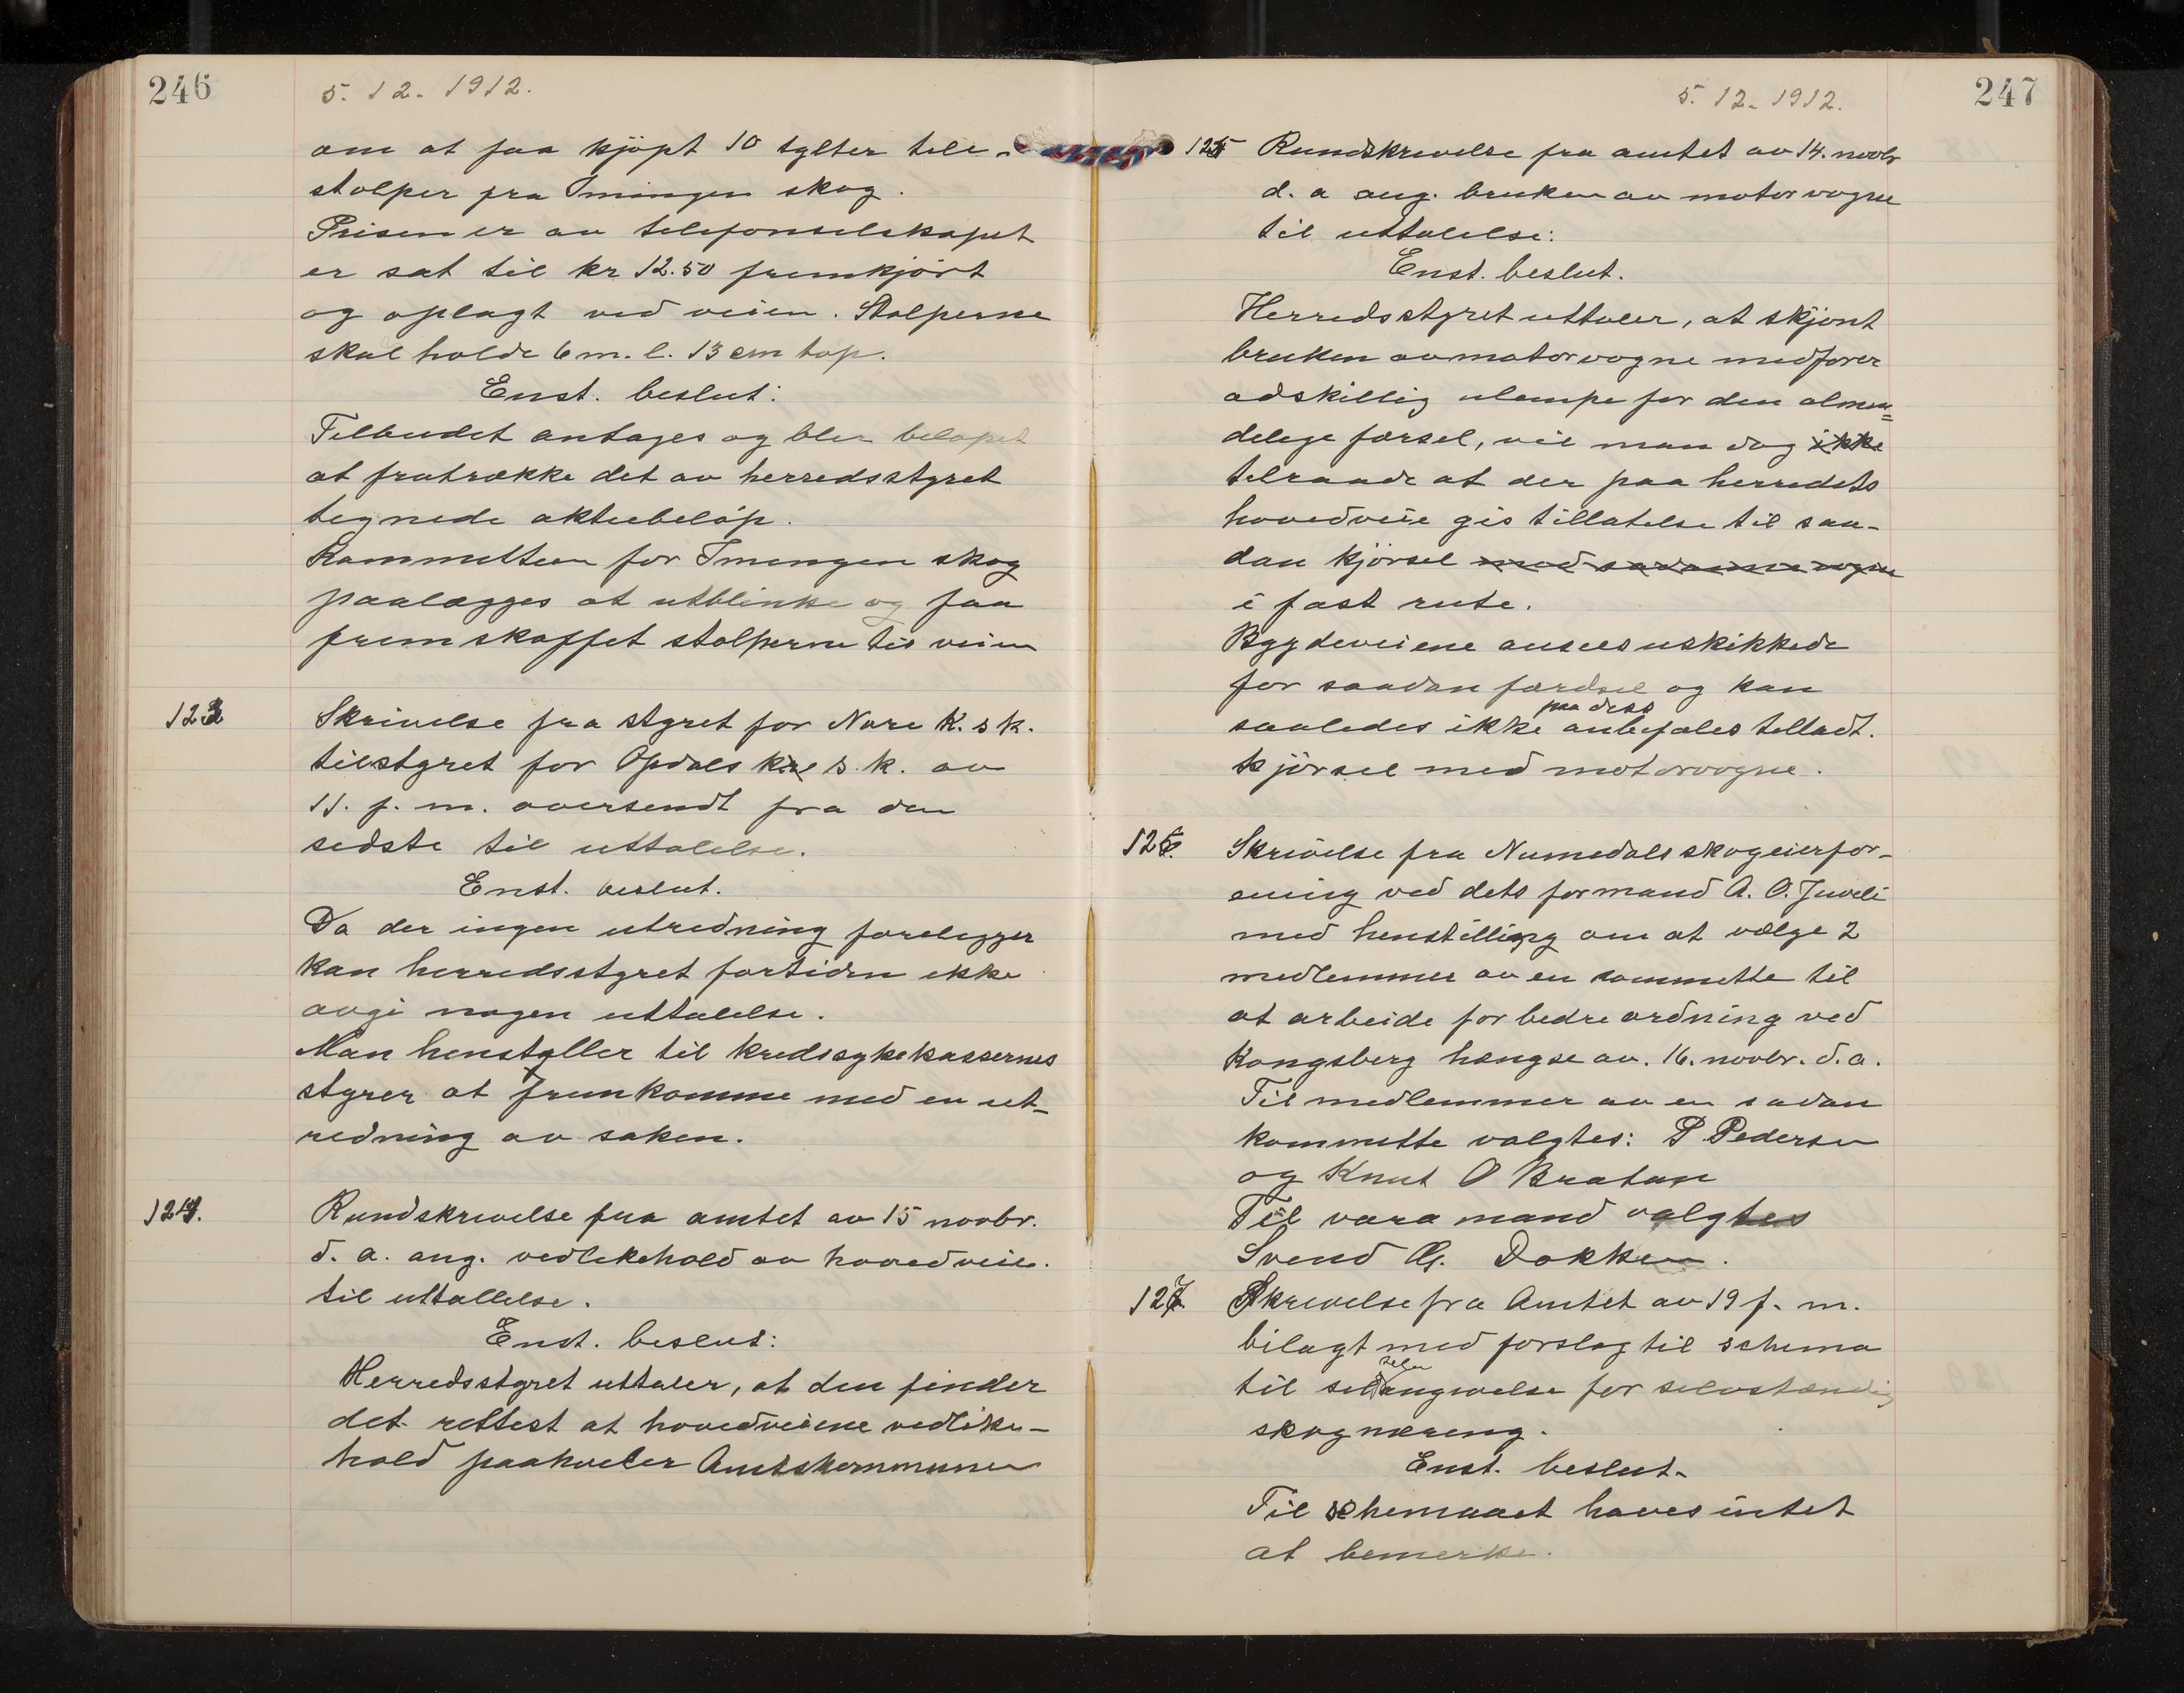 246
5. 12. 1912.
om at faa kjöpt 10 tylter tele-
stolper fra Imingen skog.
Prisen er av telefonselskapet
er sat til kr 12.50 fremkjört
og oplagt ved veien. Stolperne
skal holde 6 m. l. 13 cm top.
Enst. beslut:
Tilbudet antages og blir belöpet
at fratrække det av herredsstyret
tegnede aktiebelöp.
Kommitteen for Imingen skog
paalægges at utblinke og faa
fremskaffet stolperne til veien
123
Skrivelse fra styret for Nore K. s k.
til styret for Opdals s. k. av
11. f. m. oversendt fra den
sidste til uttalelse.
Enst. beslut.
Da der ingen utredning forelegger
kan herredsstyret fortiden ikke
avgi nogen uttalelse.
Man henstiller til kredssykekassernes
styrer at fremkomme med en ut-
redning av saken.
124.
Rundskrivelse fra amtet av 15 novbr.
d. a. ang. vedlikehold av hovedveie.
til uttallelse.
Enst. beslut:
Herredsstyret uttaler, at den finder
det rettest at hovedveiene vedlike-
hold paahviler Amtskommunen
247
5. 12. 1912.
125 Rundskrivelse fra amtet av 14. novbr
d. a ang. bruken av motorvogne
til uttalelse:
Enst. beslut.
Herredsstyret uttaler, at skjönt
bruken av motorvogne medförer
adskillig ulempe for den almen=
delige færsel, vil man dog ikke
tilraade at der paa herredets
hovedveie gis tillatelse til saa-
dan kjörsel med vogne
i fast rute.
Bygdeveiene ansees uskikkede
for saadan færdsel og kan
paa diss
saaledes ikke anbefales tilladt.
kjörsel med motorvogne.
126. Skrivelse fra Numedals skogeierfor-
ening ved dets formand A. O. Juveli
med henstilling om at vælge 2
medlemmer av en kommitte til
at arbeide for bedre ordning ved
Kongsberg hængse av. 16. novbr. d. a.
Til medlemmer av en sadan
kommitte valgtes: P. Pedersen
og Knut O Bratan
Til vara mand valgtes
Svend G. Dokken.
127 Skrivelse fra Amtet av 19 f. m.
bilagt med forslag til schema
selv
til angivelse for selvstændig
skognæring.
Enst. beslut.
Til schemaet haves intet
at bemerke.